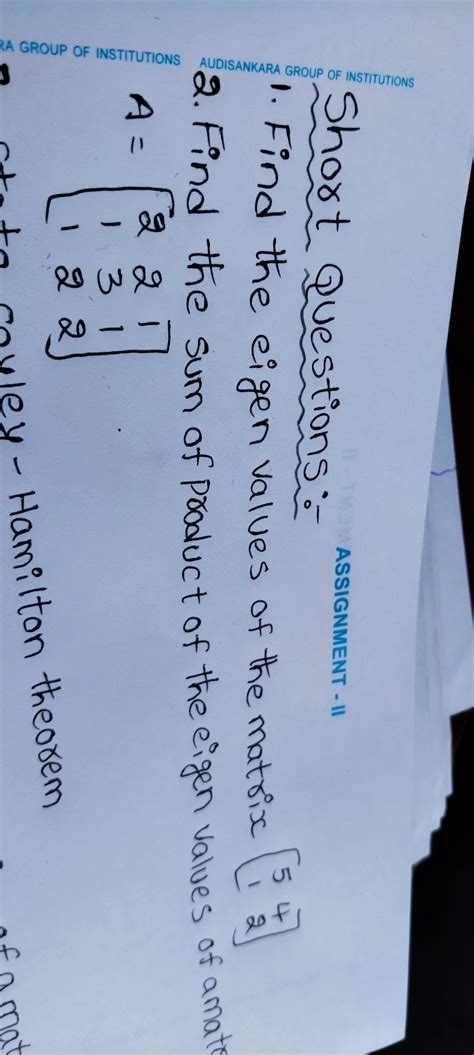 RA GROUP OF INSTITUTIONS AUDISANKARA GROUP OF INSTITUTIONS
ASSIGNMENT - II
Short Questions :-
1. Find the eigen values of the matrix [5 4
1 2]
2. Find the sum of product of the eigen values of a
A = [2 2 1
1 3 1
1 2 2]
Cayley - Hamilton theorem
of a